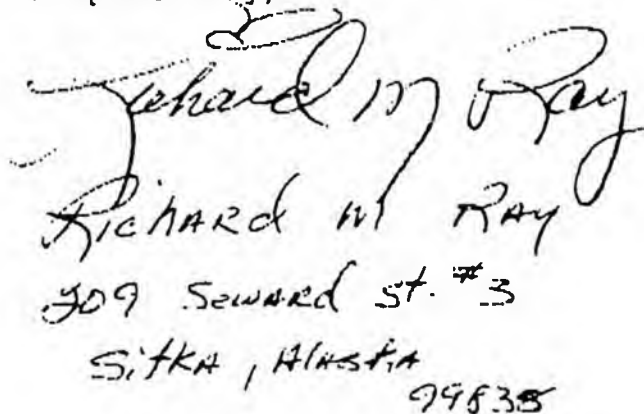 Richard M Ray
Richard M Ray
209 Seward St. #3
Sitka, Alaska
99835